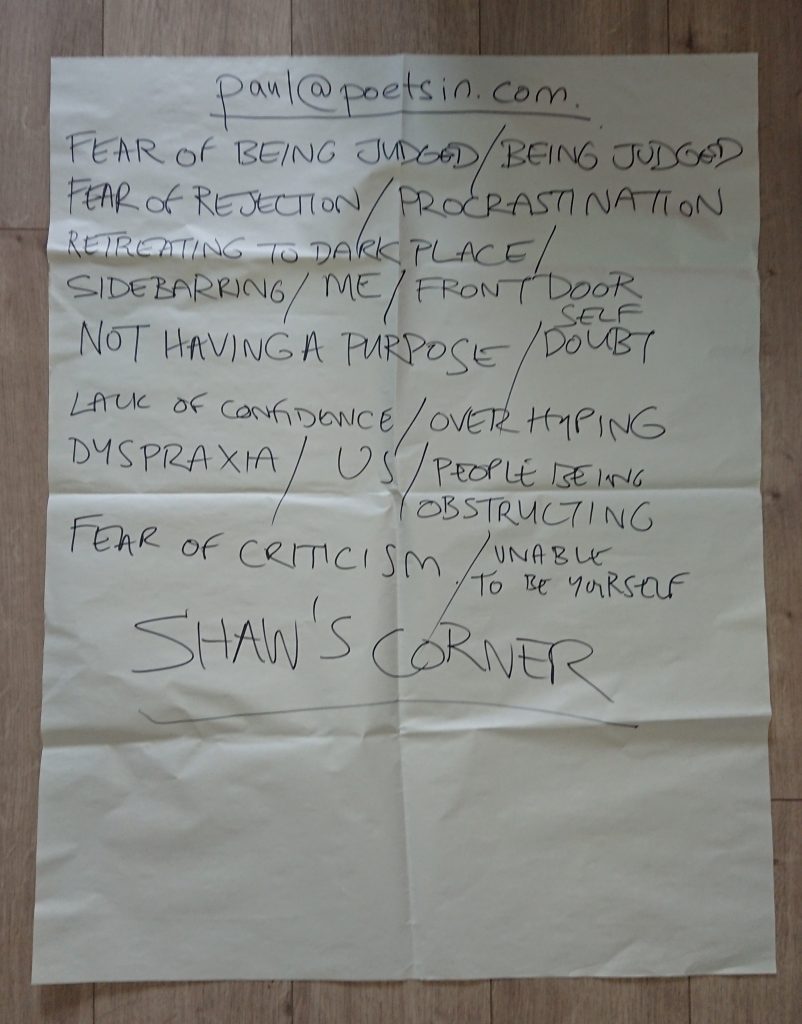 paul@poetsin.com.
FEAR OF BEING JUDGED / BEING JUDGED
FEAR OF REJECTION / PROCRASTINATION
RETREATING TO DARK PLACE /
SIDEBARRING / ME / FRONT DOOR
NOT HAVING A PURPOSE / SELF
DOUBT
LACK OF CONFIDENCE / OVER HYPING
DYSPRAXIA / US / PEOPLE BEING
OBSTRUCTING
FEAR OF CRITICISM / UNABLE
TO BE YOURSELF
SHAW'S CORNER